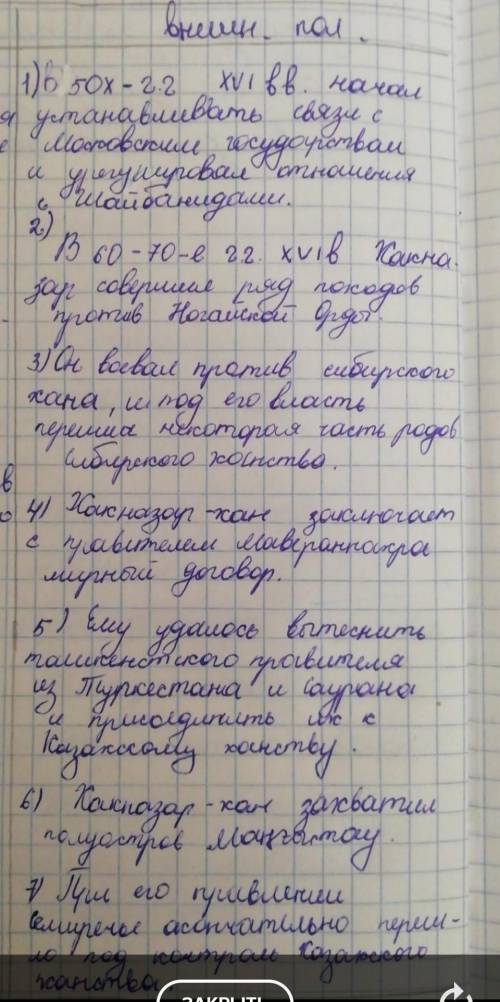 внешн. пол.
1) В 50х-г.г XVI вв. начал
устанавливать связи с
Московским государствам
и урегулировал отношения
с Шайбанидами.
2)
В 60-70-е г.г. XVI в Хакна.
зар совершил ряд походов
против Ногайской Орды.
3) Он воевал против сибирского
хана, и под его власть
перешла некоторая часть родов
Сибирского ханства.
4) Хакназар-хан заключает
с правителем Мавераннахра
мирный договор.
5) Ему удалось вытеснить
ташкентского правителя
из Туркестана и Саурана
и присоединить их к
Казахскому ханству.
6) Хакназар-хан захватил
полуостров Маңғыстау.
7) При его правлении
Семиречье окончательно переш-
ло под контроль Казахского
ханства
ЗАКРЫТЬ